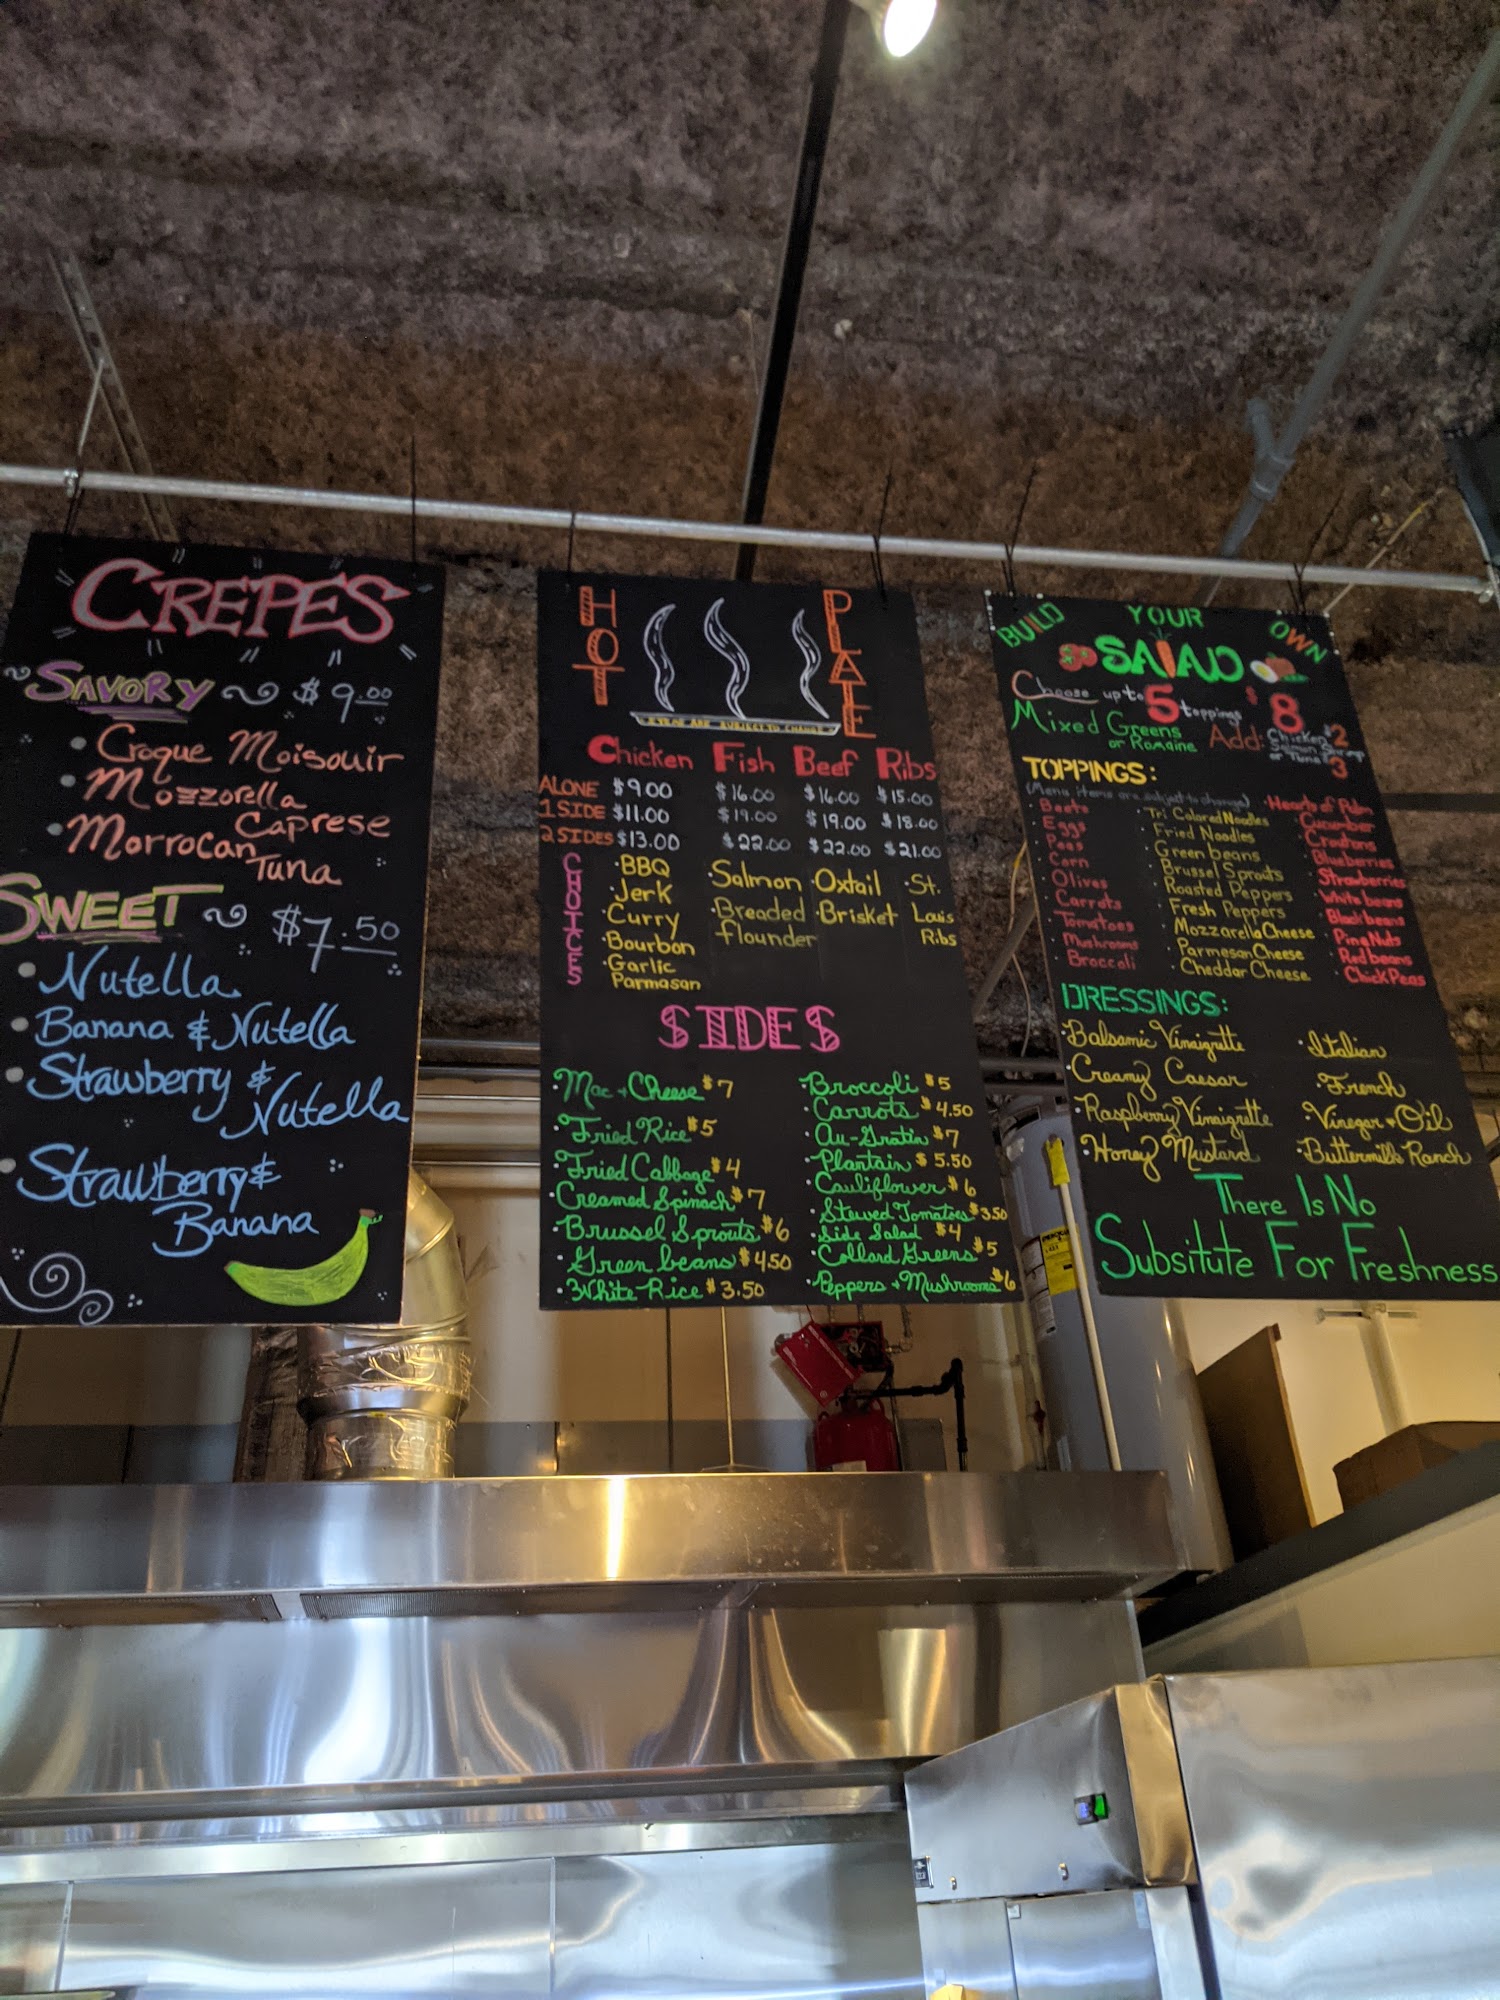 CREPES
SAVORY $9.00
Croque Moisouir
Mozzorella
Caprese
Morrocan
Tuna
SWEET $7.50
Nutella
Banana & Nutella
Strawberry &
Nutella
Strawberry &
Banana
HOT PLATE
ITEMS ARE SUBJECT TO CHANGE
Chicken Fish Beef Ribs
ALONE $9.00 $16.00 $16.00 $15.00
1 SIDE $11.00 $19.00 $19.00 $18.00
2 SIDES $13.00 $22.00 $22.00 $21.00
CHOICES
BBQ
Jerk
Curry
Bourbon
Garlic
Parmasan
Salmon
Breaded
flounder
Oxtail
Brisket
St.
Louis
Ribs
SIDES
Mac + Cheese $7
Fried Rice $5
Fried Cabbage $4
Creamed Spinach $7
Brussel Sprouts $6
Green beans $4.50
White Rice $3.50
Broccoli $5
Carrots $4.50
Au-Gratin $7
Plantain $5.50
Cauliflower $6
Stewed Tomatoes $3.50
Side Salad $4
Collard Greens $5
Peppers + Mushrooms $6
BUILD YOUR OWN
SALAD
Choose up to 5 toppings $8
Mixed Greens
or Romaine
Add: Chicken $2
Salmon, Shrimp
or Tuna $3
TOPPINGS:
(Menu items are subject to change)
Beets
Eggs
Peas
Corn
Olives
Carrots
Tomatoes
Mushrooms
Broccoli
Tri Colored Noodles
Fried Noodles
Green beans
Brussel Sprouts
Roasted Peppers
Fresh Peppers
Mozzarella Cheese
Parmesan Cheese
Cheddar Cheese
Hearts of Palm
Cucumber
Croutons
Blueberries
Strawberries
White beans
Black beans
Pine Nuts
Red beans
Chick Peas
DRESSINGS:
Balsamic Vinaigrette
Creamy Caesar
Raspberry Vinaigrette
Honey Mustard
Italian
French
Vinegar + Oil
Buttermilk Ranch
There Is No
Subsitute For Freshness